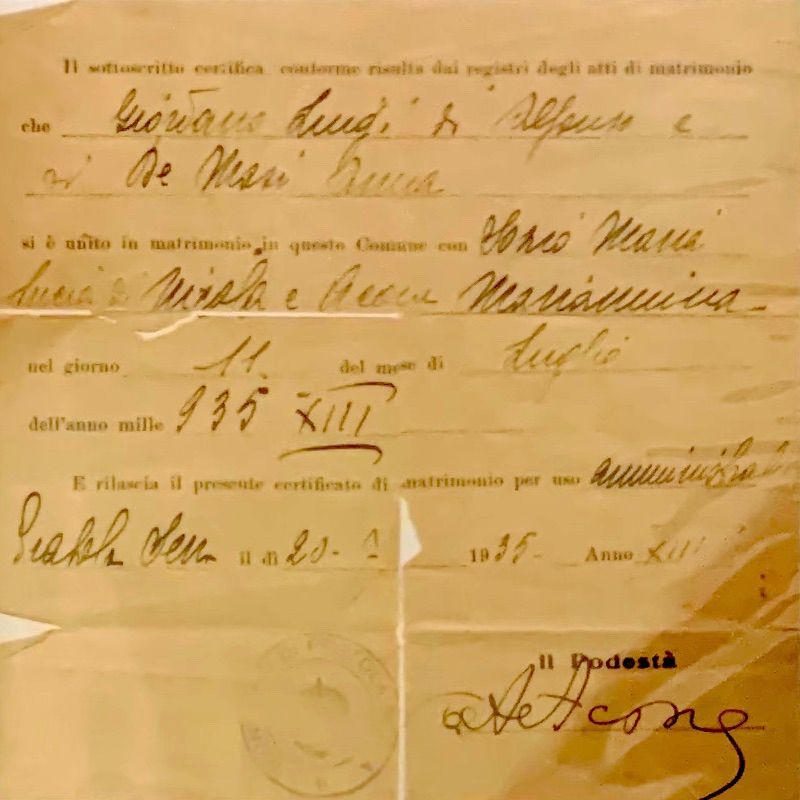 Il sottoscritto certifica conforme risulta dai registri degli atti di matrimonio
che Giordano Luigi di Alfonso e
di De Masi Anna
si è unito in matrimonio in questo Comune con Iorio Maria
Lucia di Nicola e Mariannina
nel giorno 11 del mese di Luglio
dell'anno mille 935 XIII
E rilascia il presente certificato di matrimonio per uso
il di 20- 1935- Anno XIII
Il Podestà